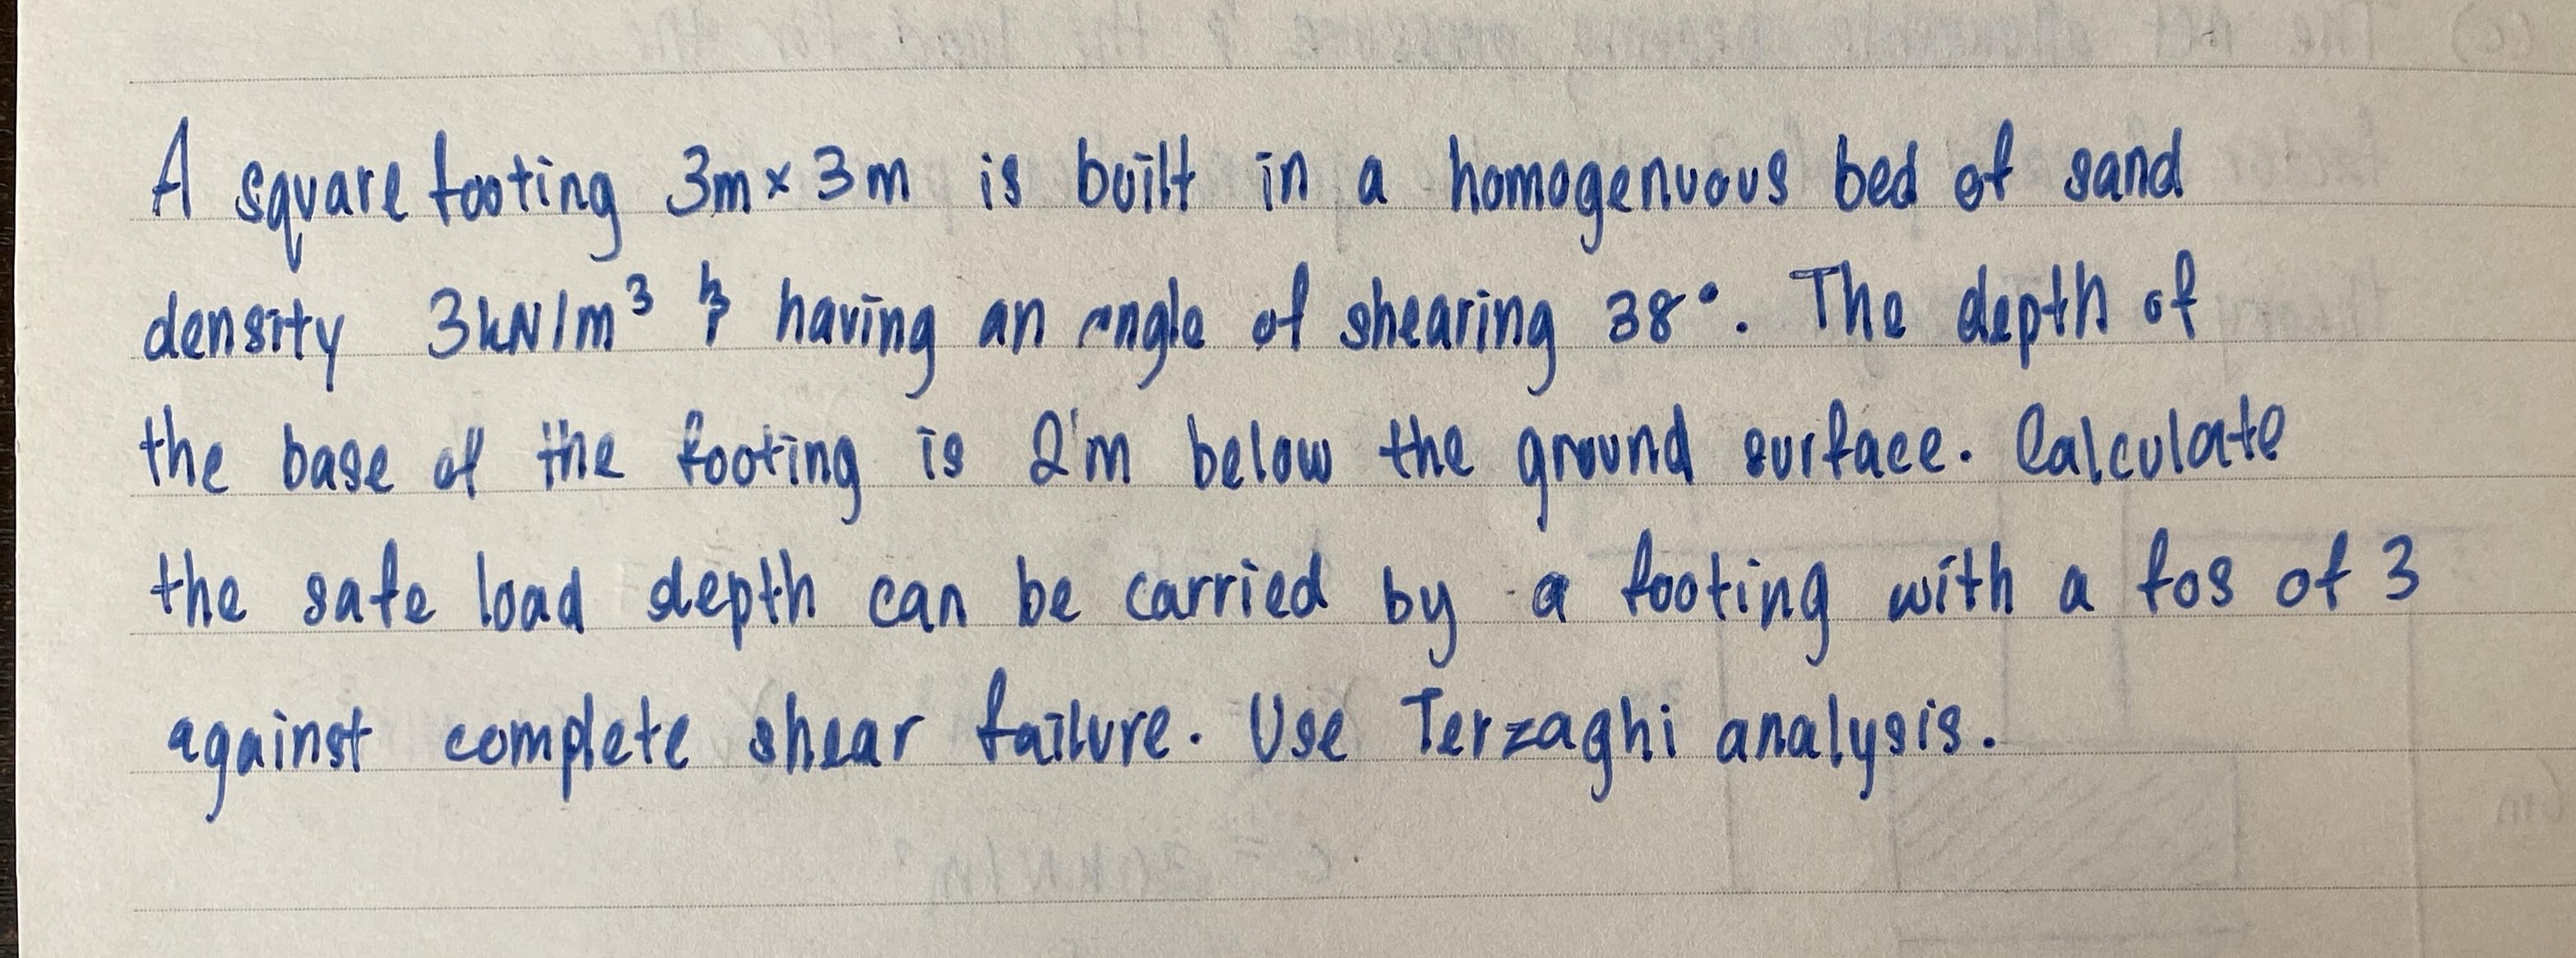 A square footing 3m × 3m is built in a homogenuous bed of sand
density 3kN/m³ & having an angle of shearing 38°. The depth of
the base of the footing is 2m below the ground surface. Calculate
the safe load depth can be carried by a footing with a fos of 3
against complete shear failure. Use Terzaghi analysis.